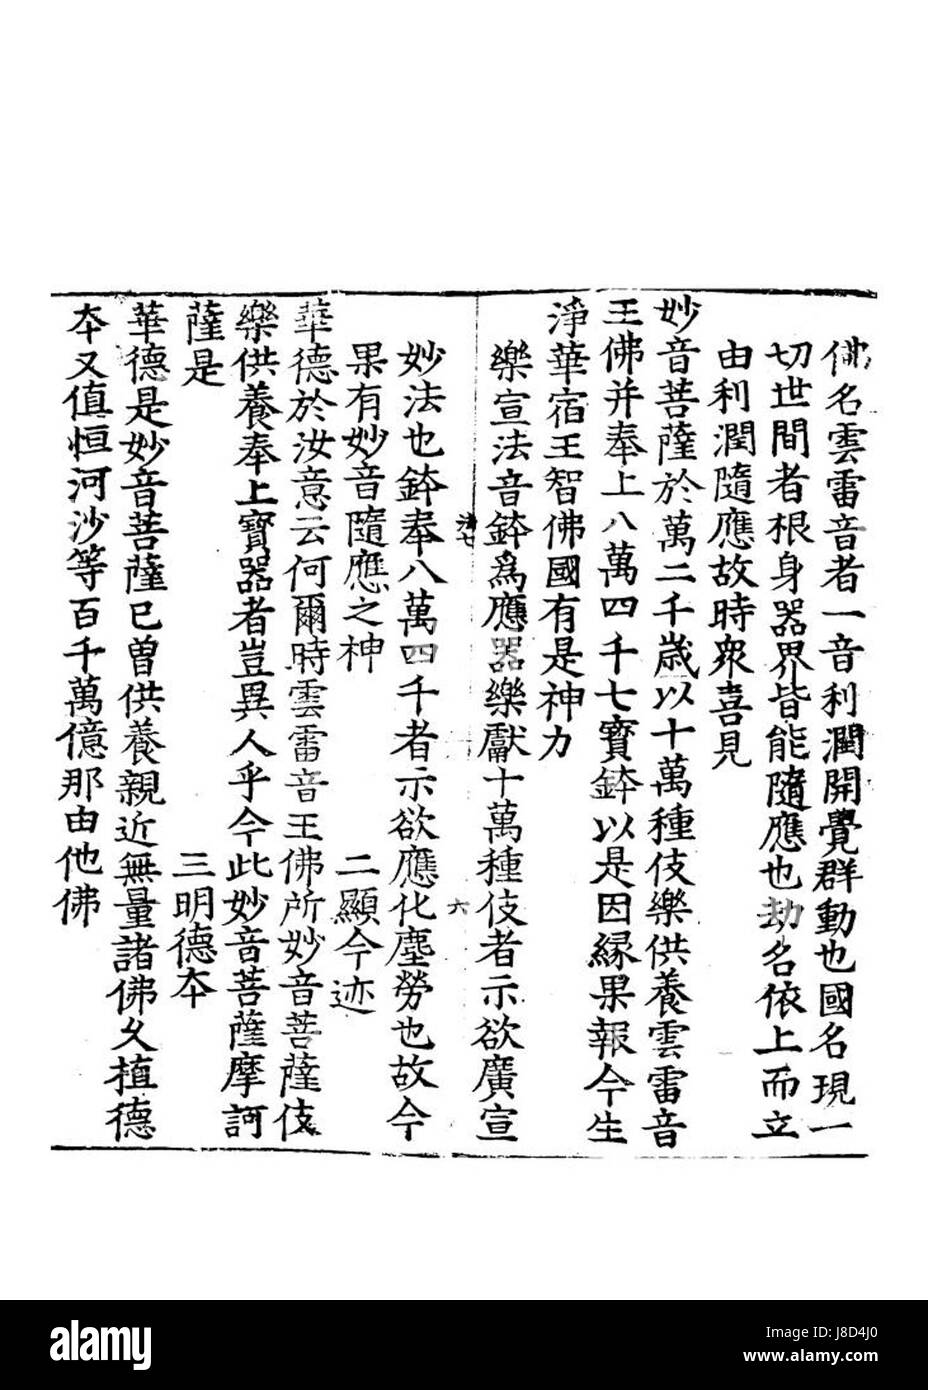 佛名雲雷音者一音利潤開覺群動也國名現一
切世間者根身器界皆能隨應也劫名依上而立
由利潤隨應故時眾喜見
妙音菩薩於萬二千歲以十萬種伎樂供養雲雷音
王佛并奉上八萬四千七寶鉢以是因緣果報今生
淨華宿王智佛國有是神力
樂宣法音鉢爲應器樂獻十萬種伎者示欲廣宣
法七 六
妙法也鉢奉八萬四千者示欲應化塵勞也故今
果有妙音隨應之神 二顯今迹
華德於汝意云何爾時雲雷音王佛所妙音菩薩伎
樂供養奉上寶器者豈異人乎今此妙音菩薩摩訶
薩是 三明德夲
華德是妙音菩薩已曾供養親近無量諸佛久植德
夲又值恒河沙等百千萬億那由他佛
alamy
alamy
Image ID: J8D4J0
www.alamy.com